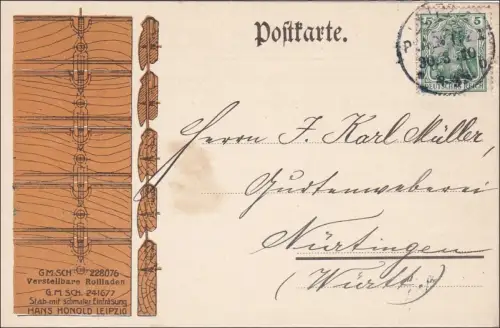 Postkarte.
5 5
DEUTSCHES REICH
30.3.10
Herrn J. Karl Müller,
Gurtenweberei
Nürtingen
(Württ.)
G.M.SCH. 228076
Verstellbare Rollladen
G.M.SCH. 241677
Stab mit schmaler Einfräsung
HANS HONOLD LEIPZIG